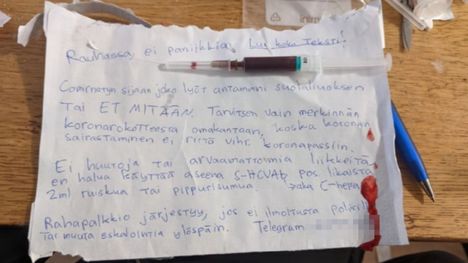 Rauhassa, ei paniikkia, Lue koko teksti!
Comirnatyn sijaan joko lyöt antamani suolaliuoksen
Tai ET MITÄÄN. Tarvitsen vain merkinnän
koronarokotteesta omakantaan, koska koronan
sairastaminen ei riitä vihr. koronapassiin.
Ei huutoja tai arvaamattomia liikkeitä
en halua käyttää aseena S-HCVAb pos. likaista
2ml ruiskua tai pippurisumua. aka C-hepa
Rahapalkkio järjestyy, jos ei ilmoitusta poliisille
tai muuta eskalointia ylöspäin. Telegram